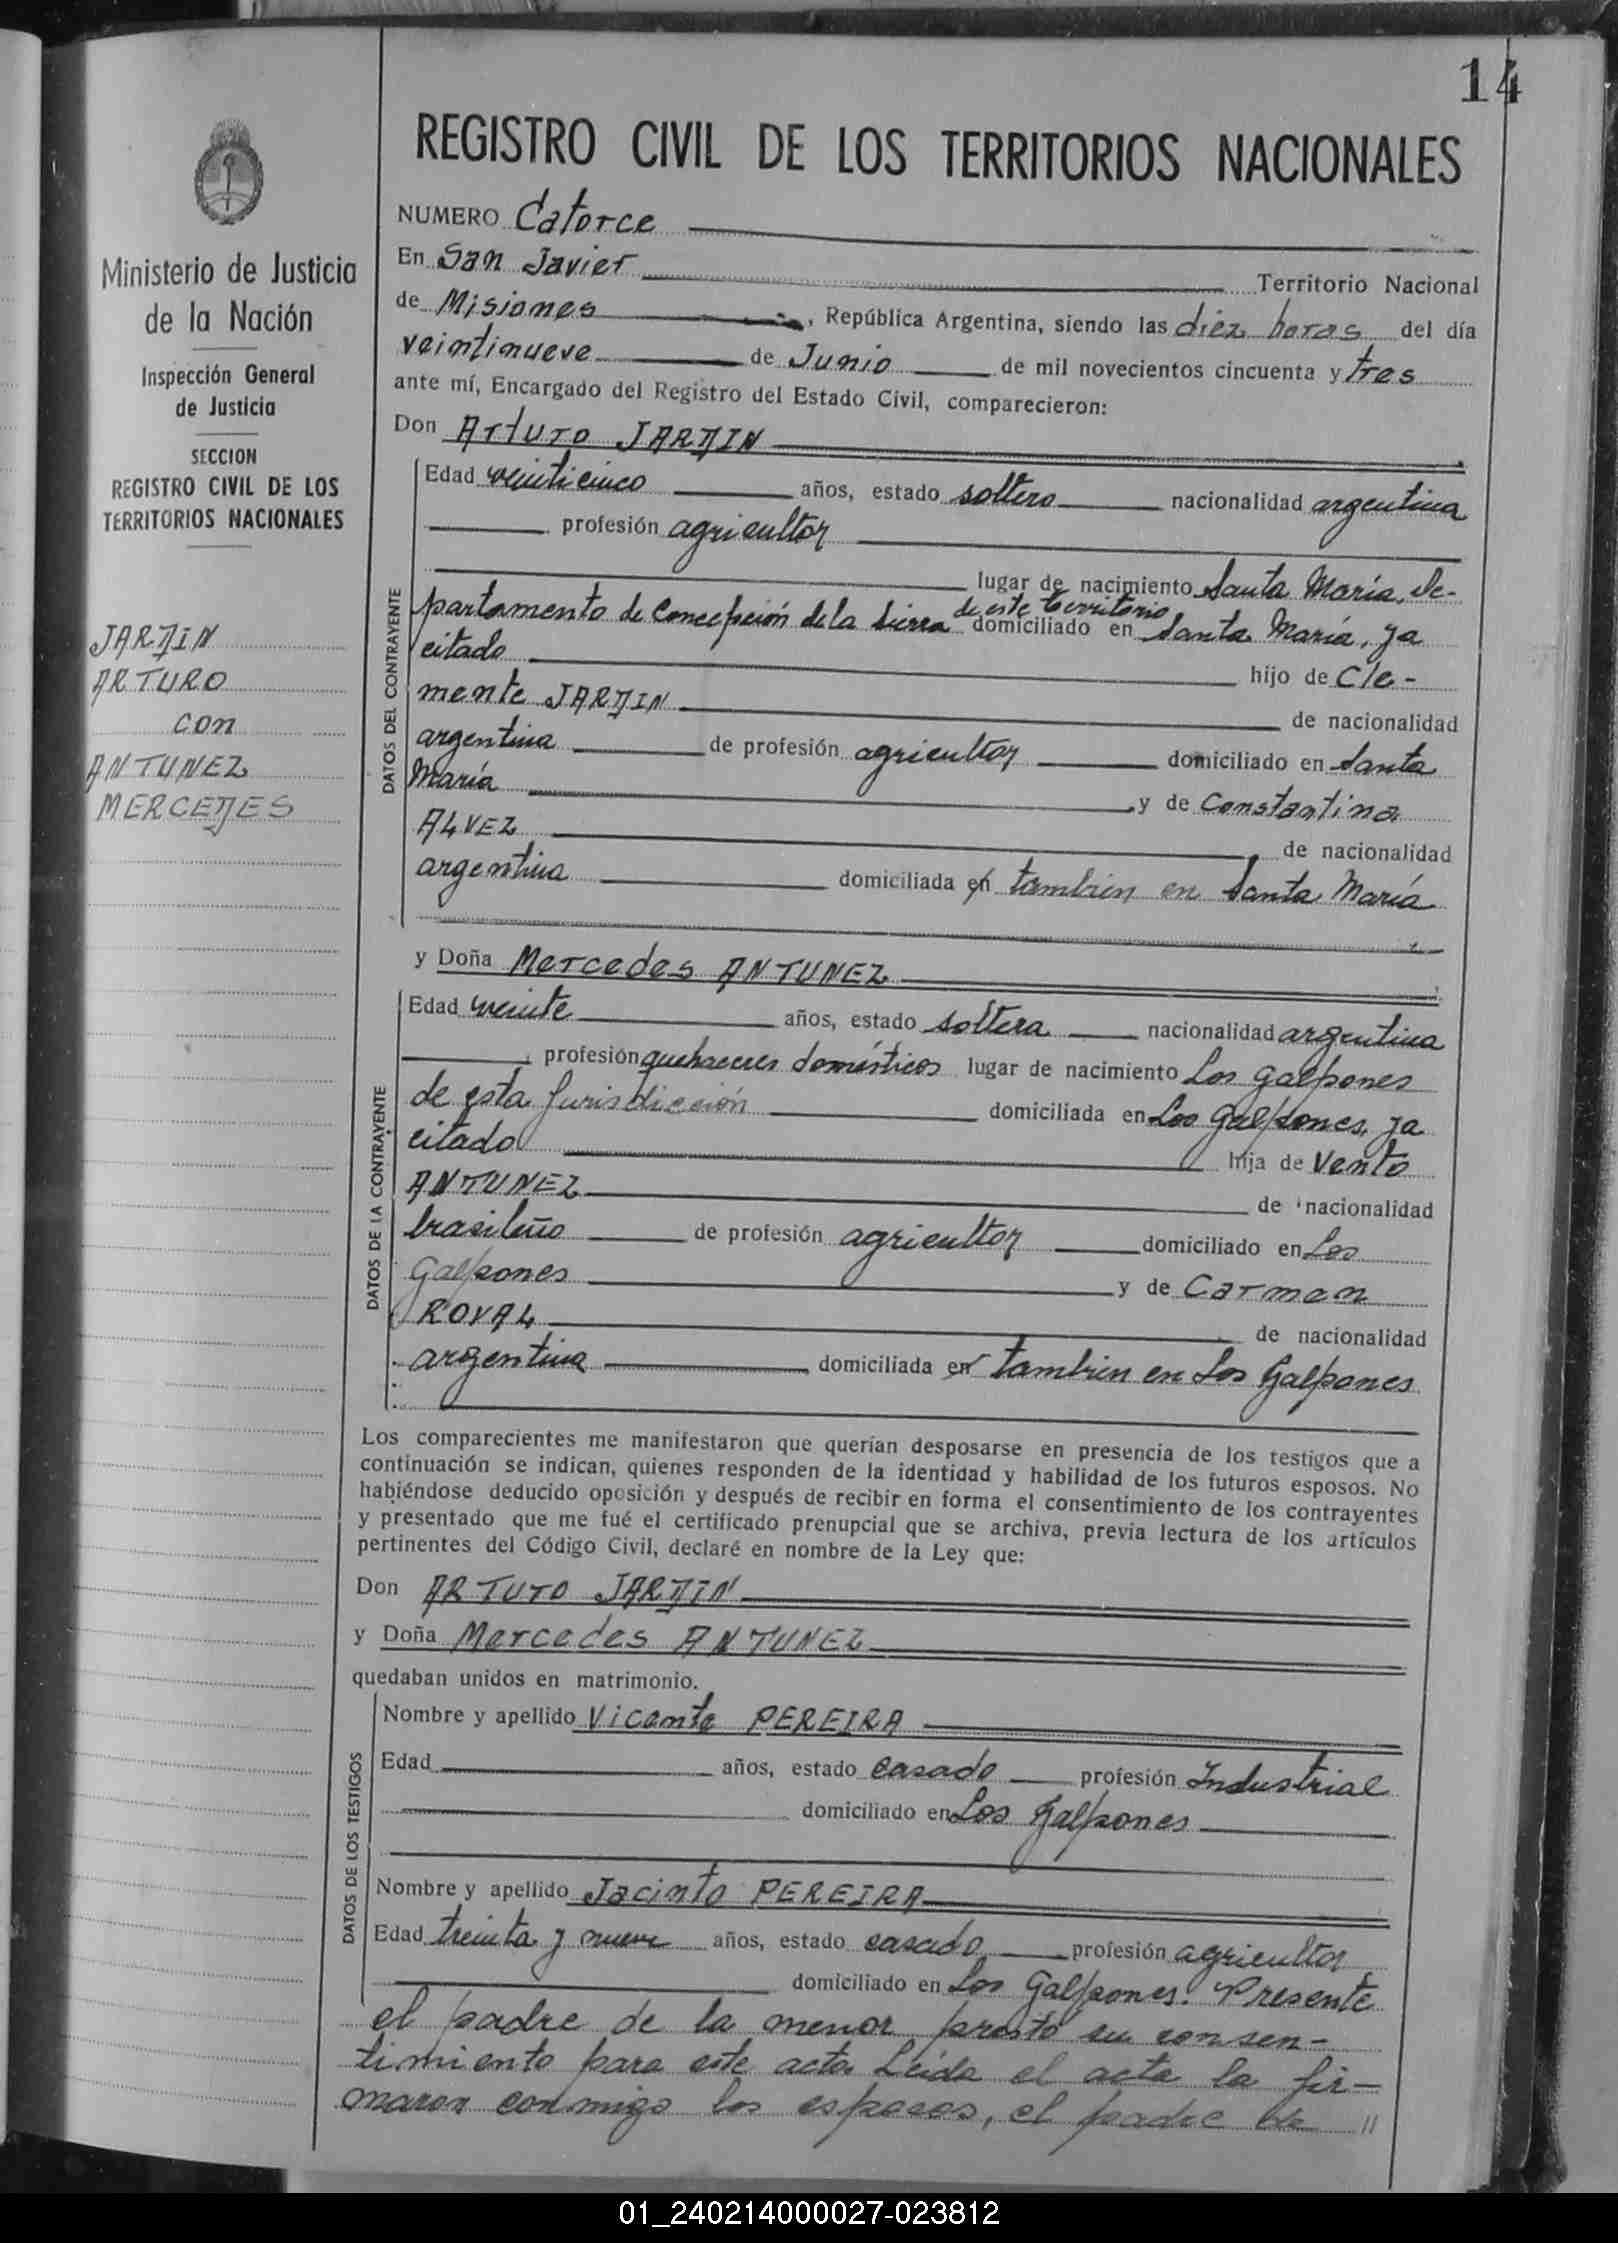 14
REGISTRO CIVIL DE LOS TERRITORIOS NACIONALES
Ministerio de Justicia
de la Nación
Inspección General
de Justicia
SECCION
REGISTRO CIVIL DE LOS
TERRITORIOS NACIONALES
JARDIN
ARTURO
con
ANTUNEZ
MERCEDES
NUMERO Catorce
En San Javier Territorio Nacional
de Misiones, República Argentina, siendo las diez horas del día
veintinueve de Junio de mil novecientos cincuenta y tres
ante mí, Encargado del Registro del Estado Civil, comparecieron:
Don Arturo JARDIN
DATOS DEL CONTRAYENTE
Edad veinticinco años, estado soltero nacionalidad argentina
profesión agricultor
lugar de nacimiento Santa María, De-
partamento de Concepción de la Sierra de este territorio domiciliado en Santa María, ya
citado hijo de Cle-
mente JARDIN de nacionalidad
argentina de profesión agricultor domiciliado en Santa
María y de Constantina
ALVEZ de nacionalidad
argentina domiciliada en tambien en Santa María
y Doña Mercedes ANTUNEZ
DATOS DE LA CONTRAYENTE
Edad veinte años, estado soltera nacionalidad argentina
profesión quehaceres domésticos lugar de nacimiento Los Galpones
de esta Jurisdicción domiciliada en Los Galpones, ya
citado hija de Vento
ANTUNEZ de nacionalidad
brasileño de profesión agricultor domiciliado en Los
Galpones y de Carmen
ROVAL de nacionalidad
argentina domiciliada en tambien en Los Galpones
Los comparecientes me manifestaron que querían desposarse en presencia de los testigos que a
continuación se indican, quienes responden de la identidad y habilidad de los futuros esposos. No
habiéndose deducido oposición y después de recibir en forma el consentimiento de los contrayentes
y presentado que me fué el certificado prenupcial que se archiva, previa lectura de los artículos
pertinentes del Código Civil, declaré en nombre de la Ley que:
Don ARTURO JARDIN
y Doña Mercedes ANTUNEZ
quedaban unidos en matrimonio.
DATOS DE LOS TESTIGOS
Nombre y apellido Vicente PEREIRA
Edad años, estado casado profesión Industrial
domiciliado en Los Galpones
Nombre y apellido Jacinto PEREIRA
Edad treinta y nueve años, estado casado profesión agricultor
domiciliado en Los Galpones. Presente
el padre de la menor prestó su consen-
timiento para este acto. Leída el acta la fir-
maron conmigo los esposos, el padre de //
01_240214000027-023812